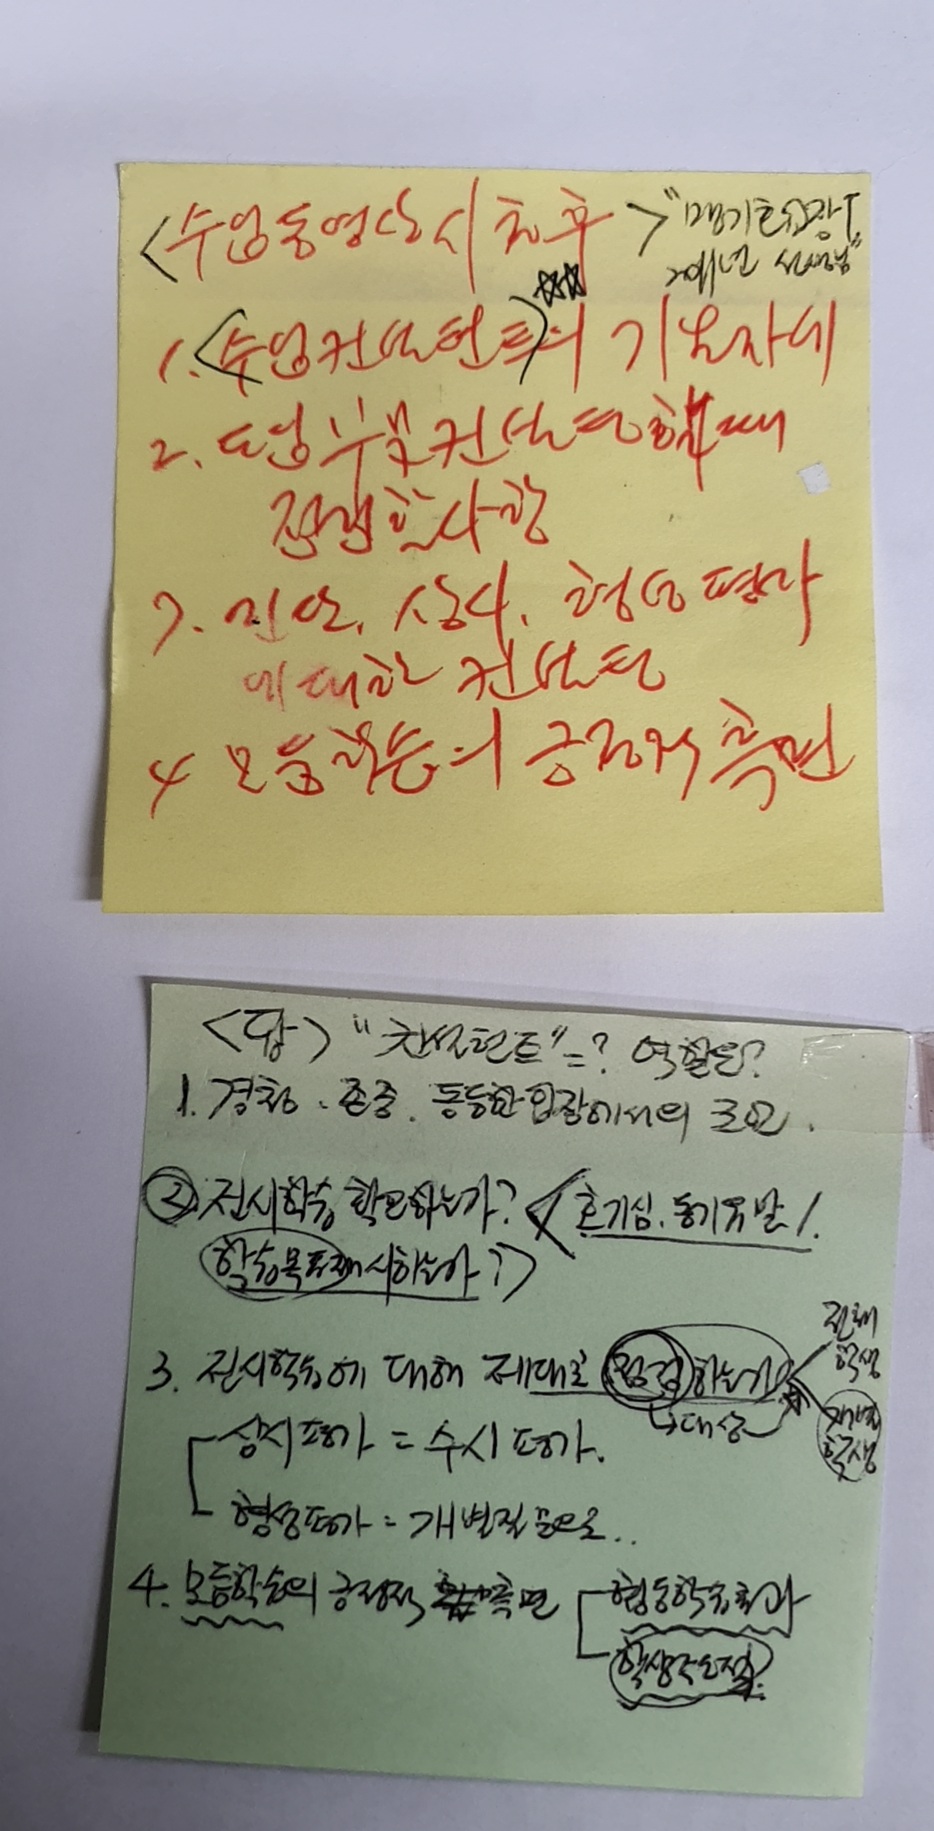 <수업동영상 시청후>
1. <수업컨설턴트>의 기본자세
2. 도입부분 컨설팅할때
점검할사항
3. 진단, 상시, 형성 평가
에 대한 컨설팅
4 모둠학습의 긍정적 측면
<답> "컨설턴트"=? 역할은?
1. 경청. 존중. 동등한 입장에서의 조언.
② 전시학습 확인하는가? < 호기심. 동기유발 /
학습목표제시하는가?>
3. 전시학습에 대해 제대로 점검하는가
전체
학생
↳대상
개별
학생
상시평가 = 수시평가.
형성평가 = 개별질문으로..
4. 모둠학습의 긍정적 측면
협동학습효과